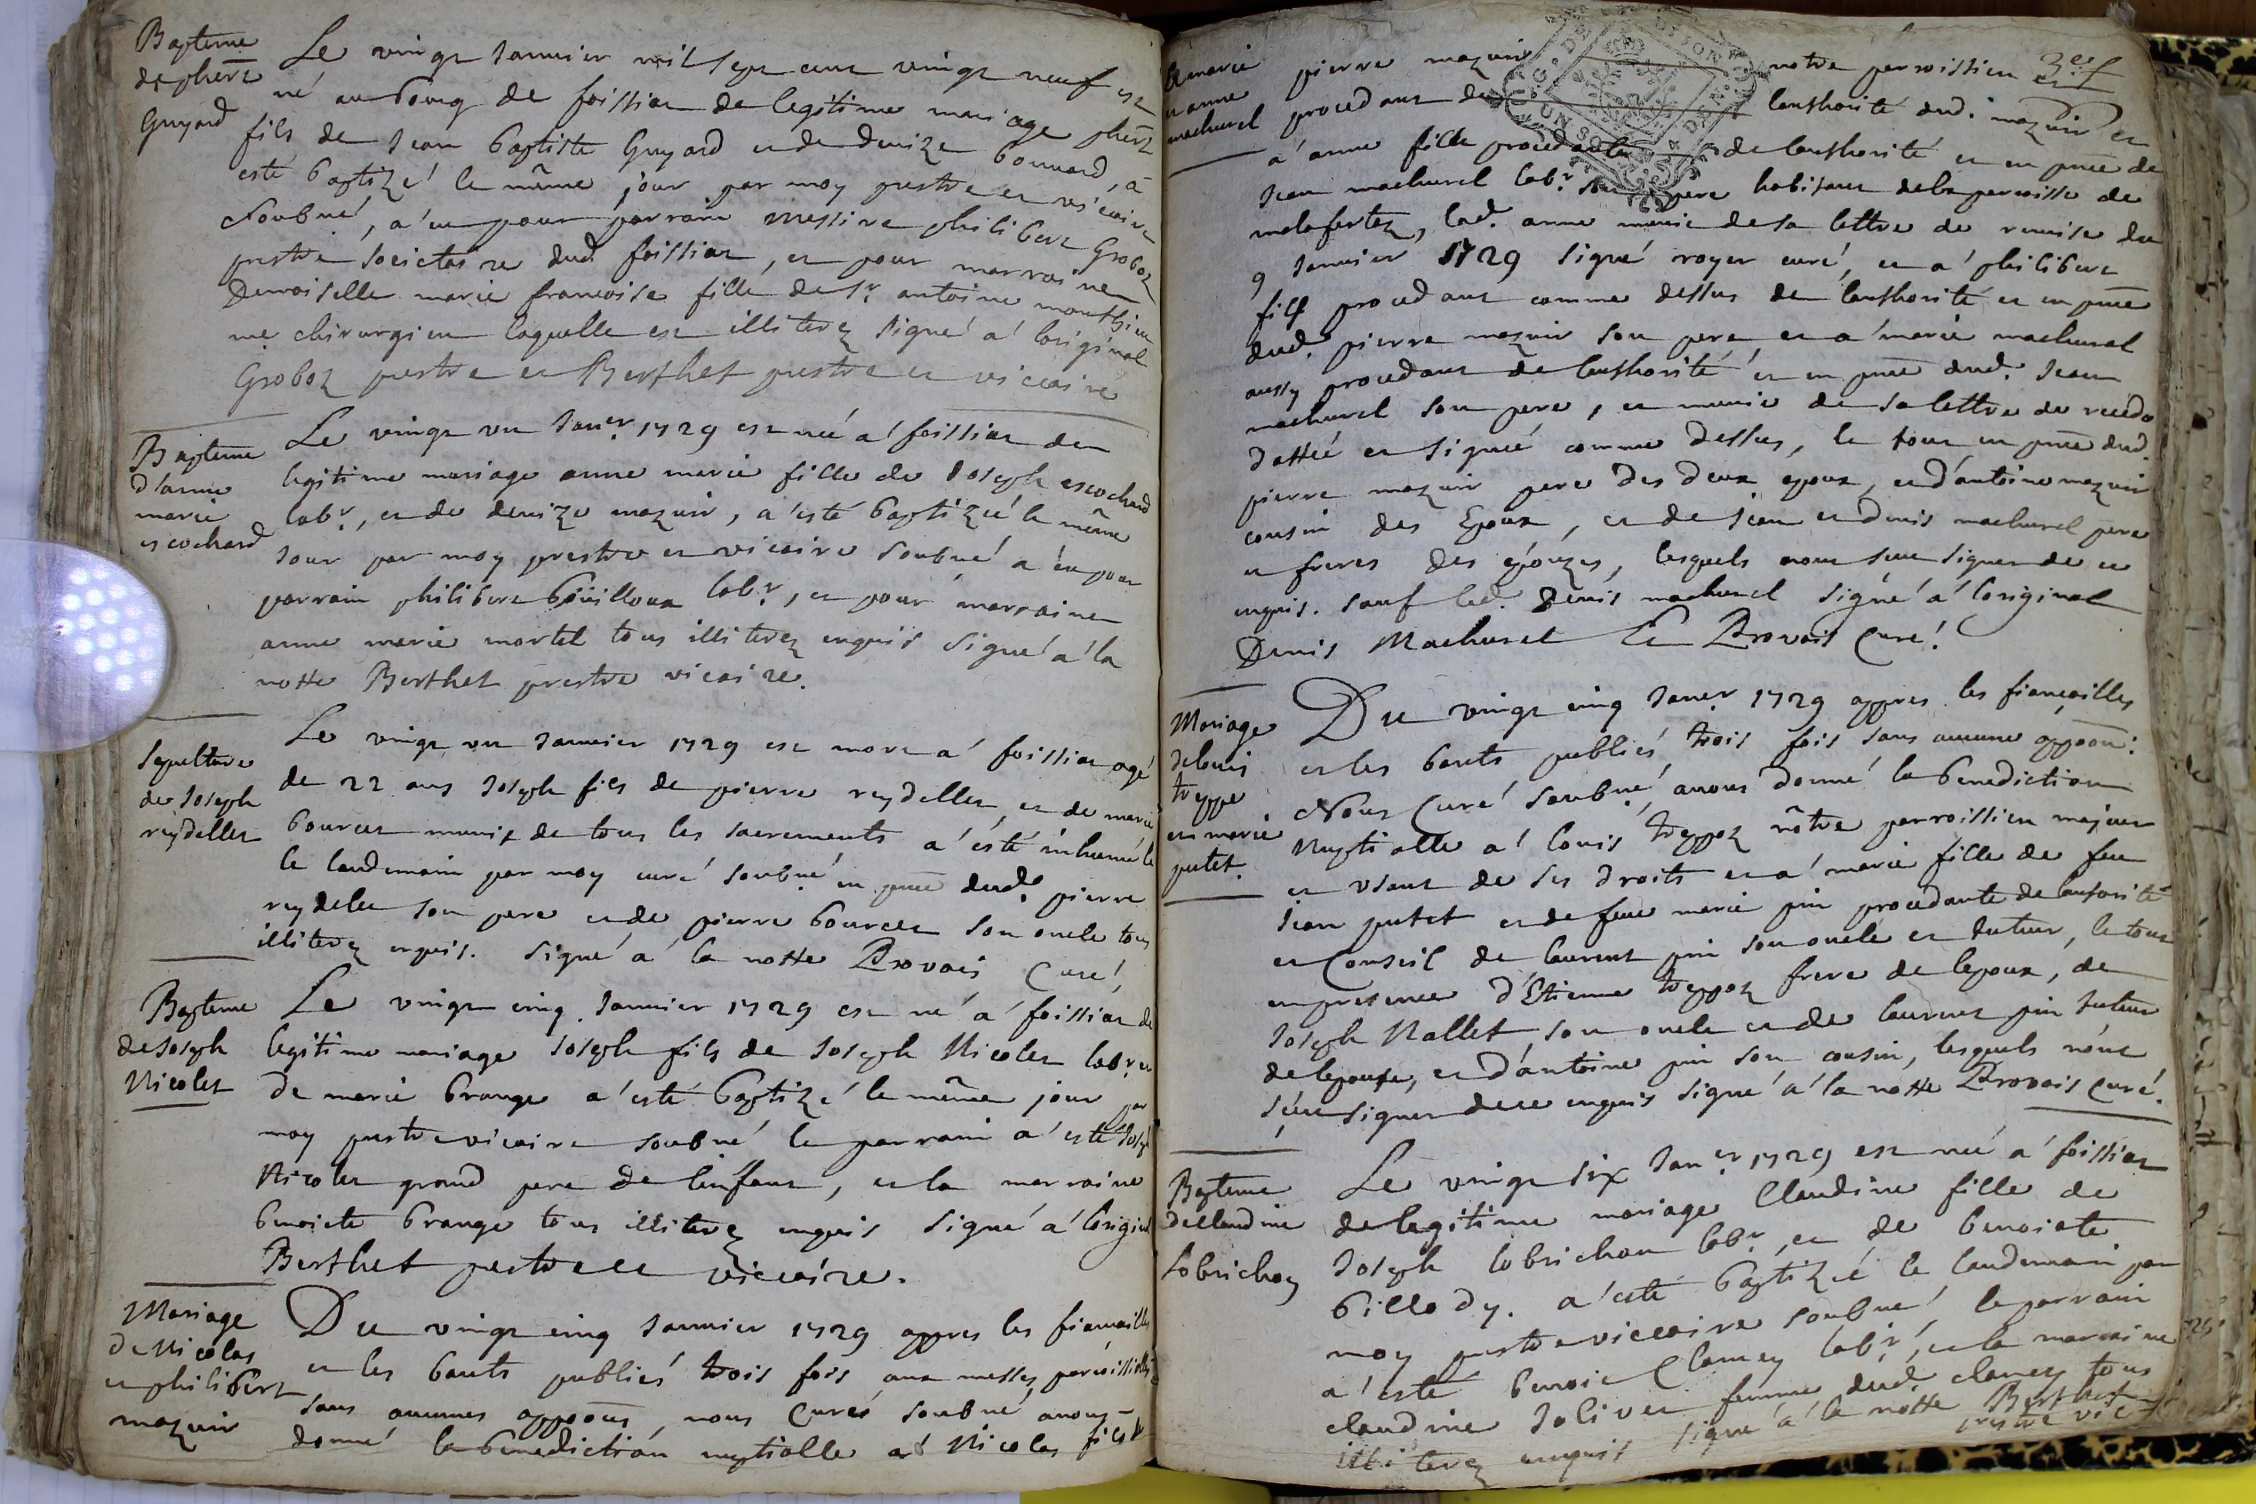 Bapteme
de phert
Guyard
Le vingt Janvier mil sept cent vingt neuf est
né au bourg de foissiat de legitime mariage phert
fils de Jean baptiste Guyard et de denize bonnard, a
esté baptizé le même jour par moy prestre et vicaire
soubné, a eu pour parrain messire philibert Groboz
prestre societaire dud. foissiat, et pour marraine
Demoiselle marie francoise fille de Sr. antoine monthieu
me chirurgien laquelle est illiterez signé a l'original
Groboz prestre et Berthet prestre et viccaire
Bapteme
d'anne
marie
escochard
Le vingt un Janer. 1729 est née a foissiat de
legitime mariage anne marie fille de Joseph escochard
labr., et de denize mazuir, a esté baptizée le même
jour par moy prestre et vicaire soubné a eu pour
parrain philibert boüilloux labr., et pour marraine
anne marie mortel tous illiterez enquis signé a la
notte Berthet prestre vicaire.
Sepulture
de Joseph
reydellet
Le vingt un Janvier 1729 est mort a foissiat agé
de 22 ans Joseph fils de pierre reydellet et de marie
bourcet munis de tous les sacrements a esté inhumé le
le landemain par moy curé soubné en pnce dud. pierre
reydelet son pere et de pierre bourcet son oncle tous
illiterez enquis. signé a la notte Provais Curé,
Bapteme
de Joseph
Nicolet
Le vingt cinq Janvier 1729 est né a foissiat de
legitime mariage Joseph fils de Joseph Nicolet labr. et
de marie brange a esté baptizé le même jour par
moy prestre vicaire soubné le parrain a esté Josph
Nicolet grand pere de l'enfant, et la marraine
benoicte brange tous illiterez enquis signé a l'original
Berthet prestre et viccaire.
Mariage
de Nicolas
et philibert
mazuir
Du vingt cinq Janvier 1729 appres les fiancailles
et les bants publiés trois fois aux messes paroissialles
sans aucunes oppoons, nous Curé soubné avons
donné la benediction nuptialle a Nicolas fils de
et marie
et anne
machurel
pierre mazuir notre paroissien
procedant de l'authorité dud. mazuir et
a anne fille procedante de l'authorité et en pnce de
Jean machurel labr. son pere habitant de la paroisse de
malafertaz, lad. anne munie de sa lettre de remise du
9 Janvier 1729 signé royer curé, et a philibert
fils procedant comme dessus de l'authorité et en pnce
dud. pierre mazuir son pere et a marie machurel
aussy procedant de l'authorité et en pnce dud. Jean
machurel son pere, et munie de sa lettre de recedo
dattée et signée comme dessus, le tout en pnce dud.
pierre mazuir pere des deux epoux, et d'antoine mazuir
cousin des Epoux, et de Jean et denis machurel pere
et freres des épouzes, lesquels n'ont sceu signer de ce
enquis. sauf led. denis machurel signé a l'original
Denis Machurel Et Provais Curé.
Mariage
de louis
treppo
et marie
putet.
Du vingt cinq Janer. 1729 appres les fiancailles
et les bants publiés trois fois sans aucune oppoon:
Nous Curé soubné avons donné la benediction
Nuptialle a louis treppoz nôtre parroissien majeur
et usant de ses droits et a marie fille de feu
Jean putet et de feue marie pin procedante de l'autorité
et Conseil de laurent pin son oncle et tuteur, le tout
en presence d'Etienne treppoz frere de l'epoux, de
Joseph Nallet son oncle et de laurent pin tuteur
de l'epouse, et d'antoine pin son cousin, lesquels n'ont
sceu signer de ce enquis signé a la notte Provais Curé.
Bapteme
de claudine
Lobrichon
Le vingt six Janer. 1729 est née a foissiat
de legitime mariage Claudine fille de
Joseph lobrichon labr., et de benoiste
billody. a esté baptizée le landemain par
moy prestre viccaire soubné, le parrain
a esté benoit Clamey labr., et la marraine
claudine Jolivet femme dud. clamey tous
illiterez enquis signé a la notte Berthet
prestre vic.